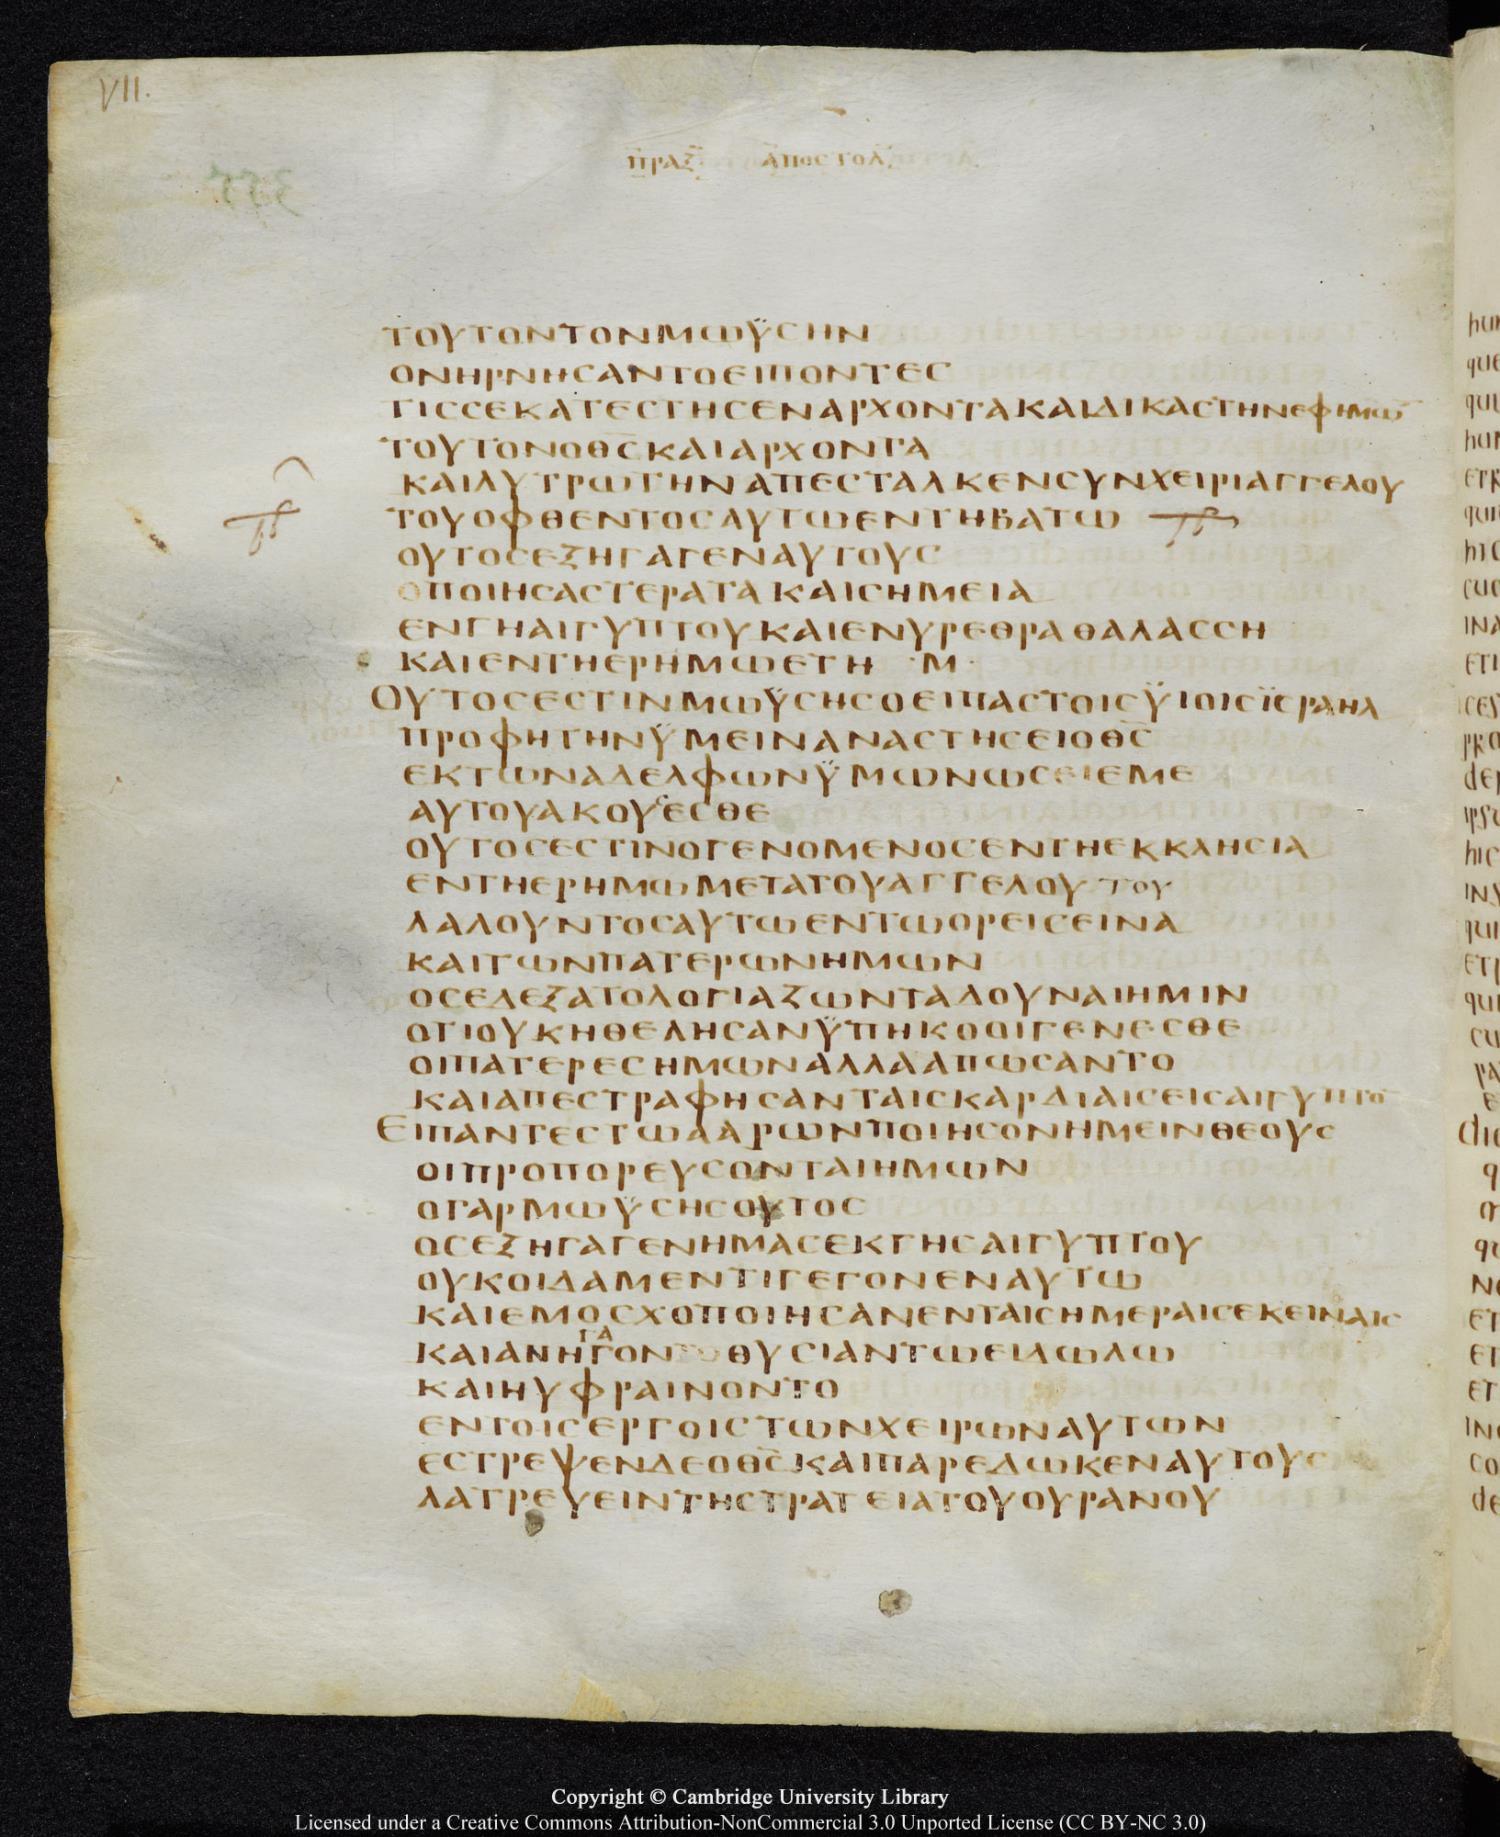 VII.
ΠΡΑΞ ΑΠΟΣΤΟΛ
ΤΟΥΤΟΝΤΟΝΜΩΫΣΗΝ
ΟΝΗΡΝΗΣΑΝΤΟΕΙΠΟΝΤΕΣ
ΤΙΣΣΕΚΑΤΕΣΤΗΣΕΝΑΡΧΟΝΤΑΚΑΙΔΙΚΑΣΤΗΝΕΦΗΜΩ̅
ΤΟΥΤΟΝΟΘ̅Σ̅ΚΑΙΑΡΧΟΝΤΑ
ΚΑΙΛΥΤΡΩΤΗΝΑΠΕΣΤΑΛΚΕΝΣΥΝΧΕΙΡΙΑΓΓΕΛΟΥ
ΤΟΥΟΦΘΕΝΤΟΣΑΥΤΩΕΝΤΗΒΑΤΩ
ΟΥΤΟΣΕΞΗΓΑΓΕΝΑΥΤΟΥΣ
ΟΠΟΙΗΣΑΣΤΕΡΑΤΑΚΑΙΣΗΜΕΙΑ
ΕΝΓΗΑΙΓΥΠΤΟΥΚΑΙΕΝΥΡΕΘΡΑΘΑΛΑΣΣΗ
ΚΑΙΕΝΤΗΕΡΗΜΩΕΤΗ ·Μ·
ΟΥΤΟΣΕΣΤΙΝΜΩΫΣΗΣΟΕΙΠΑΣΤΟΙΣΫΙΟΙΣΪΣΡΑΗΛ
ΠΡΟΦΗΤΗΝΫΜΕΙΝΑΝΑΣΤΗΣΕΙΟΘ̅Σ̅
ΕΚΤΩΝΑΔΕΛΦΩΝΫΜΩΝΩΣΕΙΕΜΕ
ΑΥΤΟΥΑΚΟΥΣΕΣΘΕ
ΟΥΤΟΣΕΣΤΙΝΟΓΕΝΟΜΕΝΟΣΕΝΤΗΕΚΚΛΗΣΙΑ
ΕΝΤΗΕΡΗΜΩΜΕΤΑΤΟΥΑΓΓΕΛΟΥ ΤΟΥ
ΛΑΛΟΥΝΤΟΣΑΥΤΩΕΝΤΩΟΡΕΙΣΕΙΝΑ
ΚΑΙΤΩΝΠΑΤΕΡΩΝΗΜΩΝ
ΟΣΕΛΕΞΑΤΟΛΟΓΙΑΖΩΝΤΑΔΟΥΝΑΙΗΜΙΝ
ΟΤΙΟΥΚΗΘΕΛΗΣΑΝΫΠΗΚΟΟΙΓΕΝΕΣΘΕ
ΟΙΠΑΤΕΡΕΣΗΜΩΝΑΛΛΑΑΠΩΣΑΝΤΟ
ΚΑΙΑΠΕΣΤΡΑΦΗΣΑΝΤΑΙΣΚΑΡΔΙΑΙΣΕΙΣΑΙΓΥΠΤΟ̅
ΕΙΠΑΝΤΕΣΤΩΑΑΡΩΝΠΟΙΗΣΟΝΗΜΕΙΝΘΕΟΥΣ
ΟΙΠΡΟΠΟΡΕΥΣΟΝΤΑΙΗΜΩΝ
ΟΓΑΡΜΩΫΣΗΣΟΥΤΟΣ
ΟΣΕΞΗΓΑΓΕΝΗΜΑΣΕΚΓΗΣΑΙΓΥΠΤΟΥ
ΟΥΚΟΙΔΑΜΕΝΤΙΓΕΓΟΝΕΝΑΥΤΩ
ΚΑΙΕΜΟΣΧΟΠΟΙΗΣΑΝΕΝΤΑΙΣΗΜΕΡΑΙΣΕΚΕΙΝΑΙΣ
ΓΑ
ΚΑΙΑΝΗΓΟΝ ΘΥΣΙΑΝΤΩΕΙΔΩΛΩ
ΚΑΙΗΥΦΡΑΙΝΟΝΤΟ
ΕΝΤΟΙΣΕΡΓΟΙΣΤΩΝΧΕΙΡΩΝΑΥΤΩΝ
ΕΣΤΡΕΨΕΝΔΕΟΘ̅Σ̅ΚΑΙΠΑΡΕΔΩΚΕΝΑΥΤΟΥΣ
ΛΑΤΡΕΥΕΙΝΤΗΣΤΡΑΤΕΙΑΤΟΥΟΥΡΑΝΟΥ
Copyright © Cambridge University Library
Licensed under a Creative Commons Attribution-NonCommercial 3.0 Unported License (CC BY-NC 3.0)